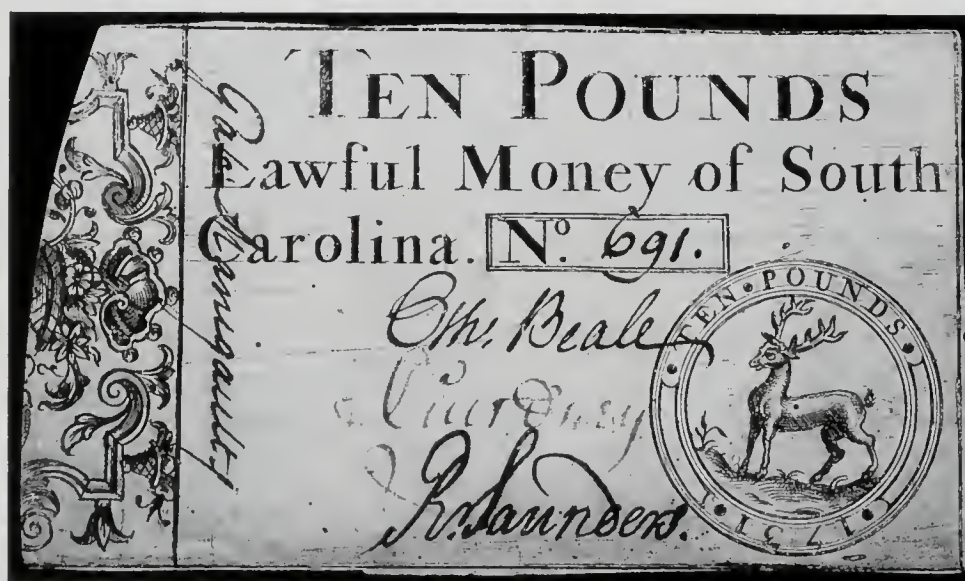 TEN POUNDS
Lawful Money of South
Carolina. No. 691.
Oth. Beale
R. Saunders.
TEN • POUNDS •
• 1731 •